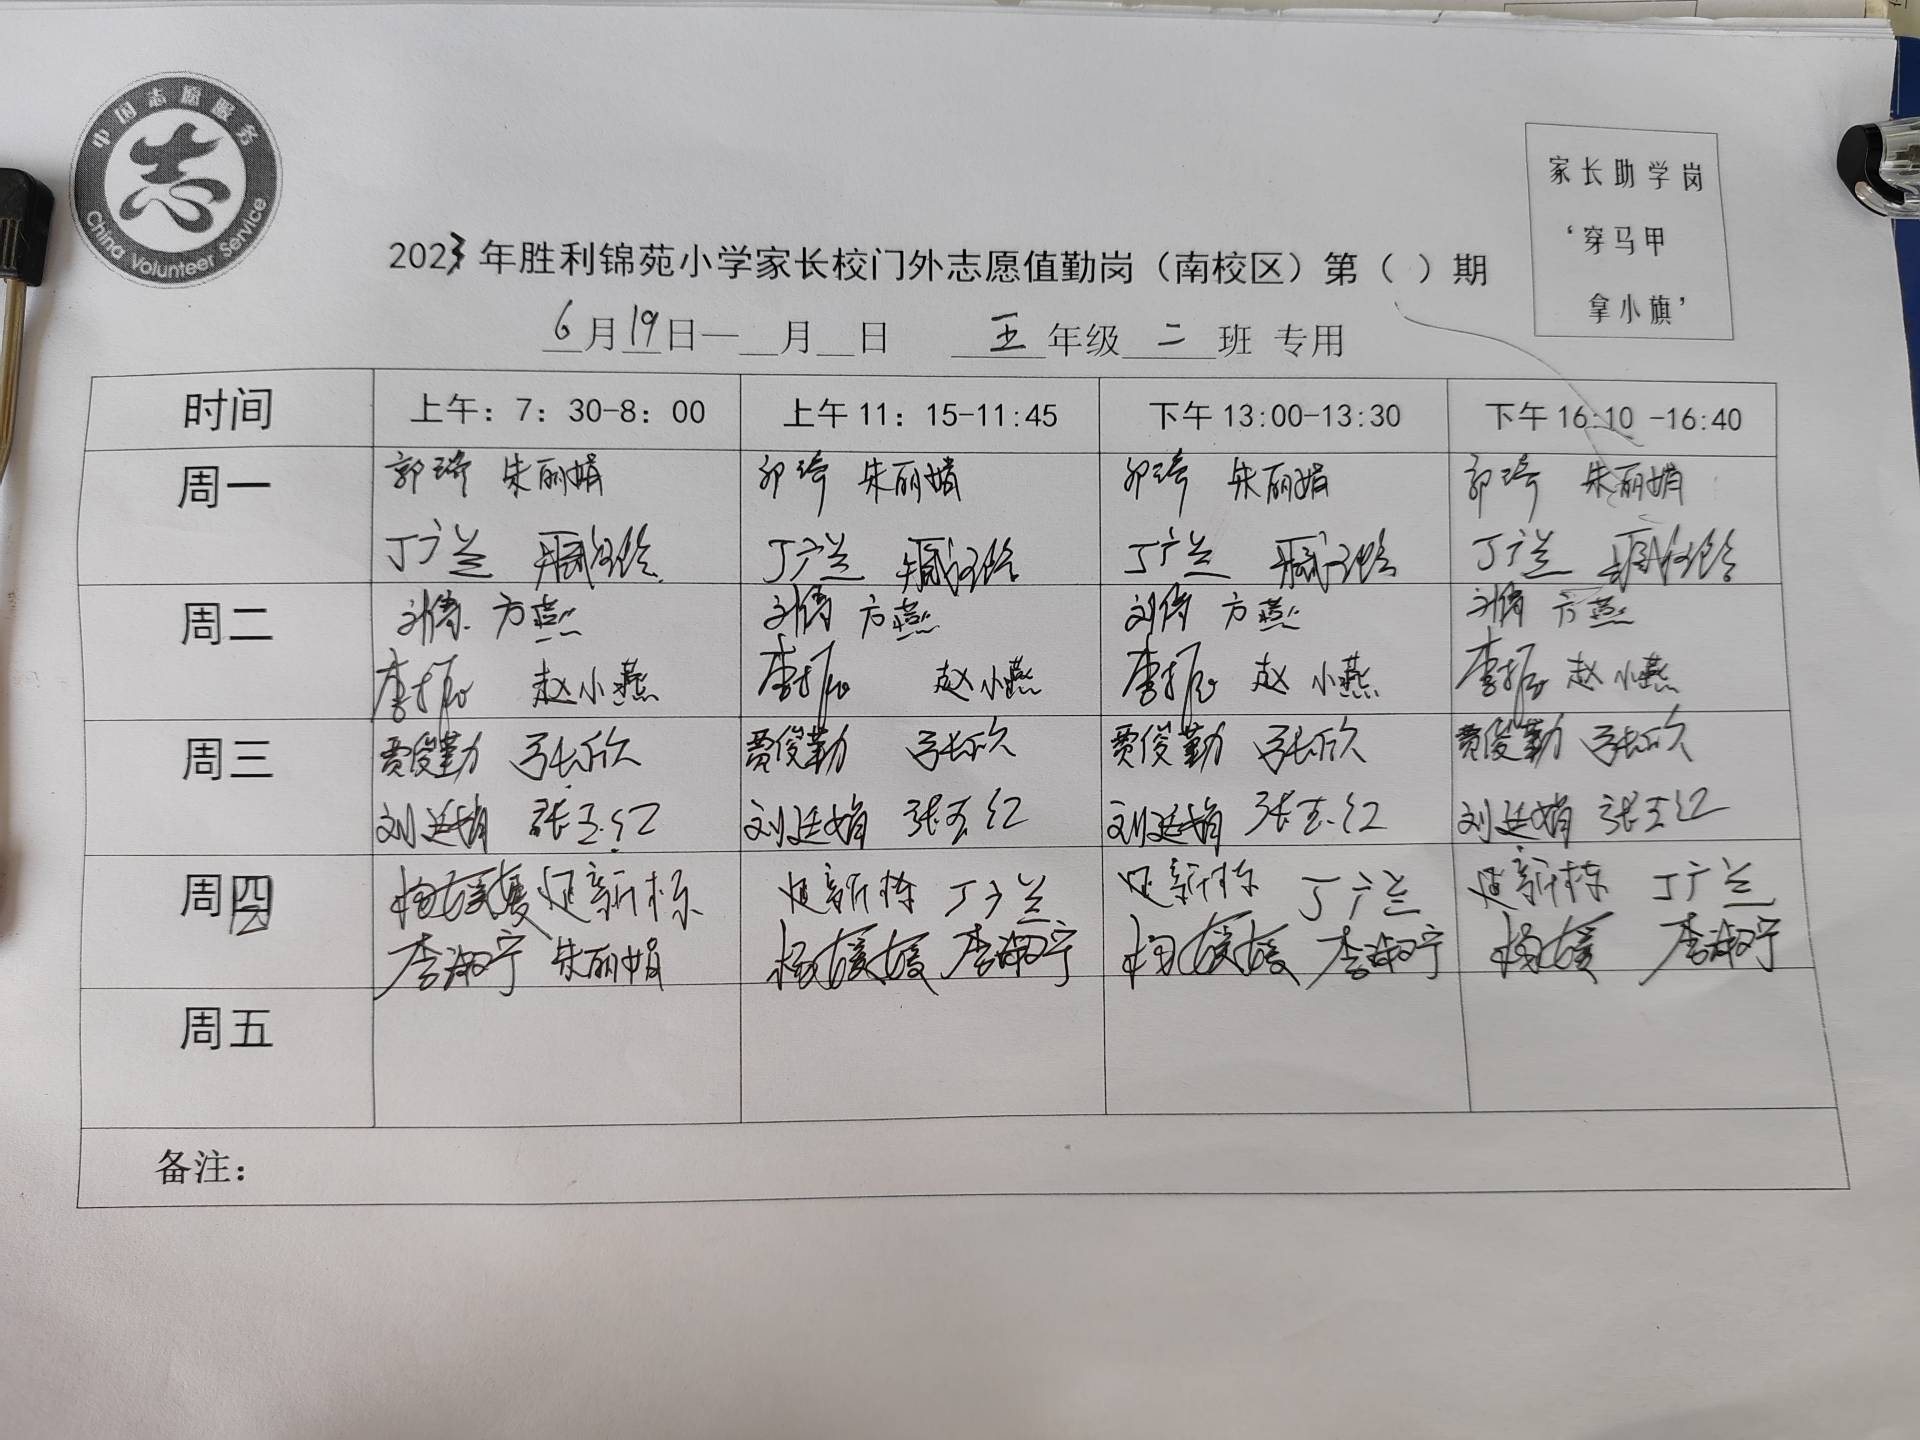 中国志愿服务
志
China Volunteer Service
家长助学岗
‘穿马甲
拿小旗’
2023年胜利锦苑小学家长校门外志愿值勤岗（南校区）第（ ）期
6月19日—__月__日 五年级二班 专用
时间 上午：7：30-8：00 上午11：15-11:45 下午13:00-13:30 下午16:10 -16:40
周一 郭琦 朱丽娟 郭琦 朱丽娟 郭琦 朱丽娟 郭琦 朱丽娟
丁广兰 丁广兰 丁广兰 丁广兰
周二 刘倩 方燕 刘倩 方燕 刘倩 方燕 刘倩 方燕
李振 赵小燕 李振 赵小燕 李振 赵小燕 李振 赵小燕
周三 贾俊勤 张欣 贾俊勤 张欣 贾俊勤 张欣 贾俊勤 张欣
刘廷娟 张玉红 刘廷娟 张玉红 刘廷娟 张玉红 刘廷娟 张玉红
周四 杨媛媛 延新栋 延新栋 丁广兰 延新栋 丁广兰 延新栋 丁广兰
李淑宁 朱丽娟 杨媛媛 李淑宁 杨媛媛 李淑宁 杨媛 李淑宁
周五
备注：